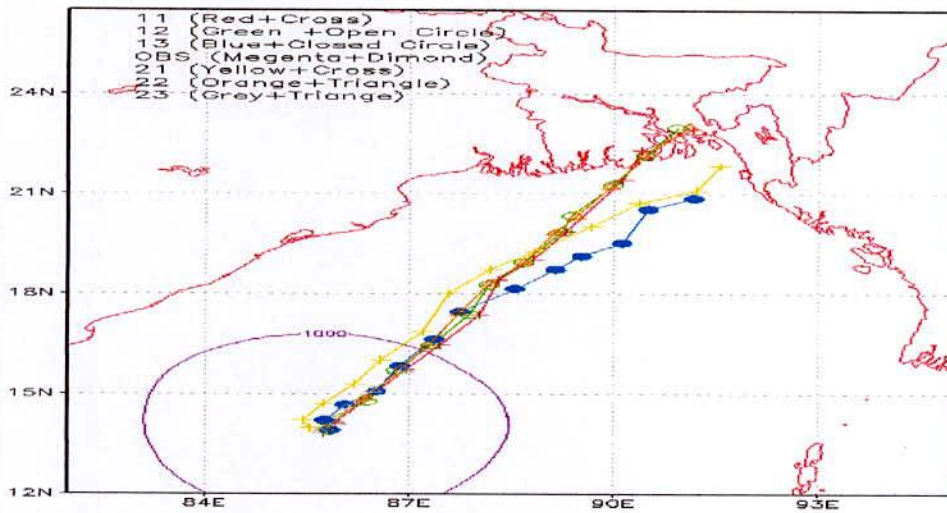 11 (Red+Cross)
12 (Green +Open Circle)
13 (Blue+Closed Circle)
OBS (Megenta+Dimond)
21 (Yellow+Cross)
22 (Orange+Triangle)
23 (Grey+Triange)
24N
21N
18N
1000
15N
12N
84E
87E
90E
93E